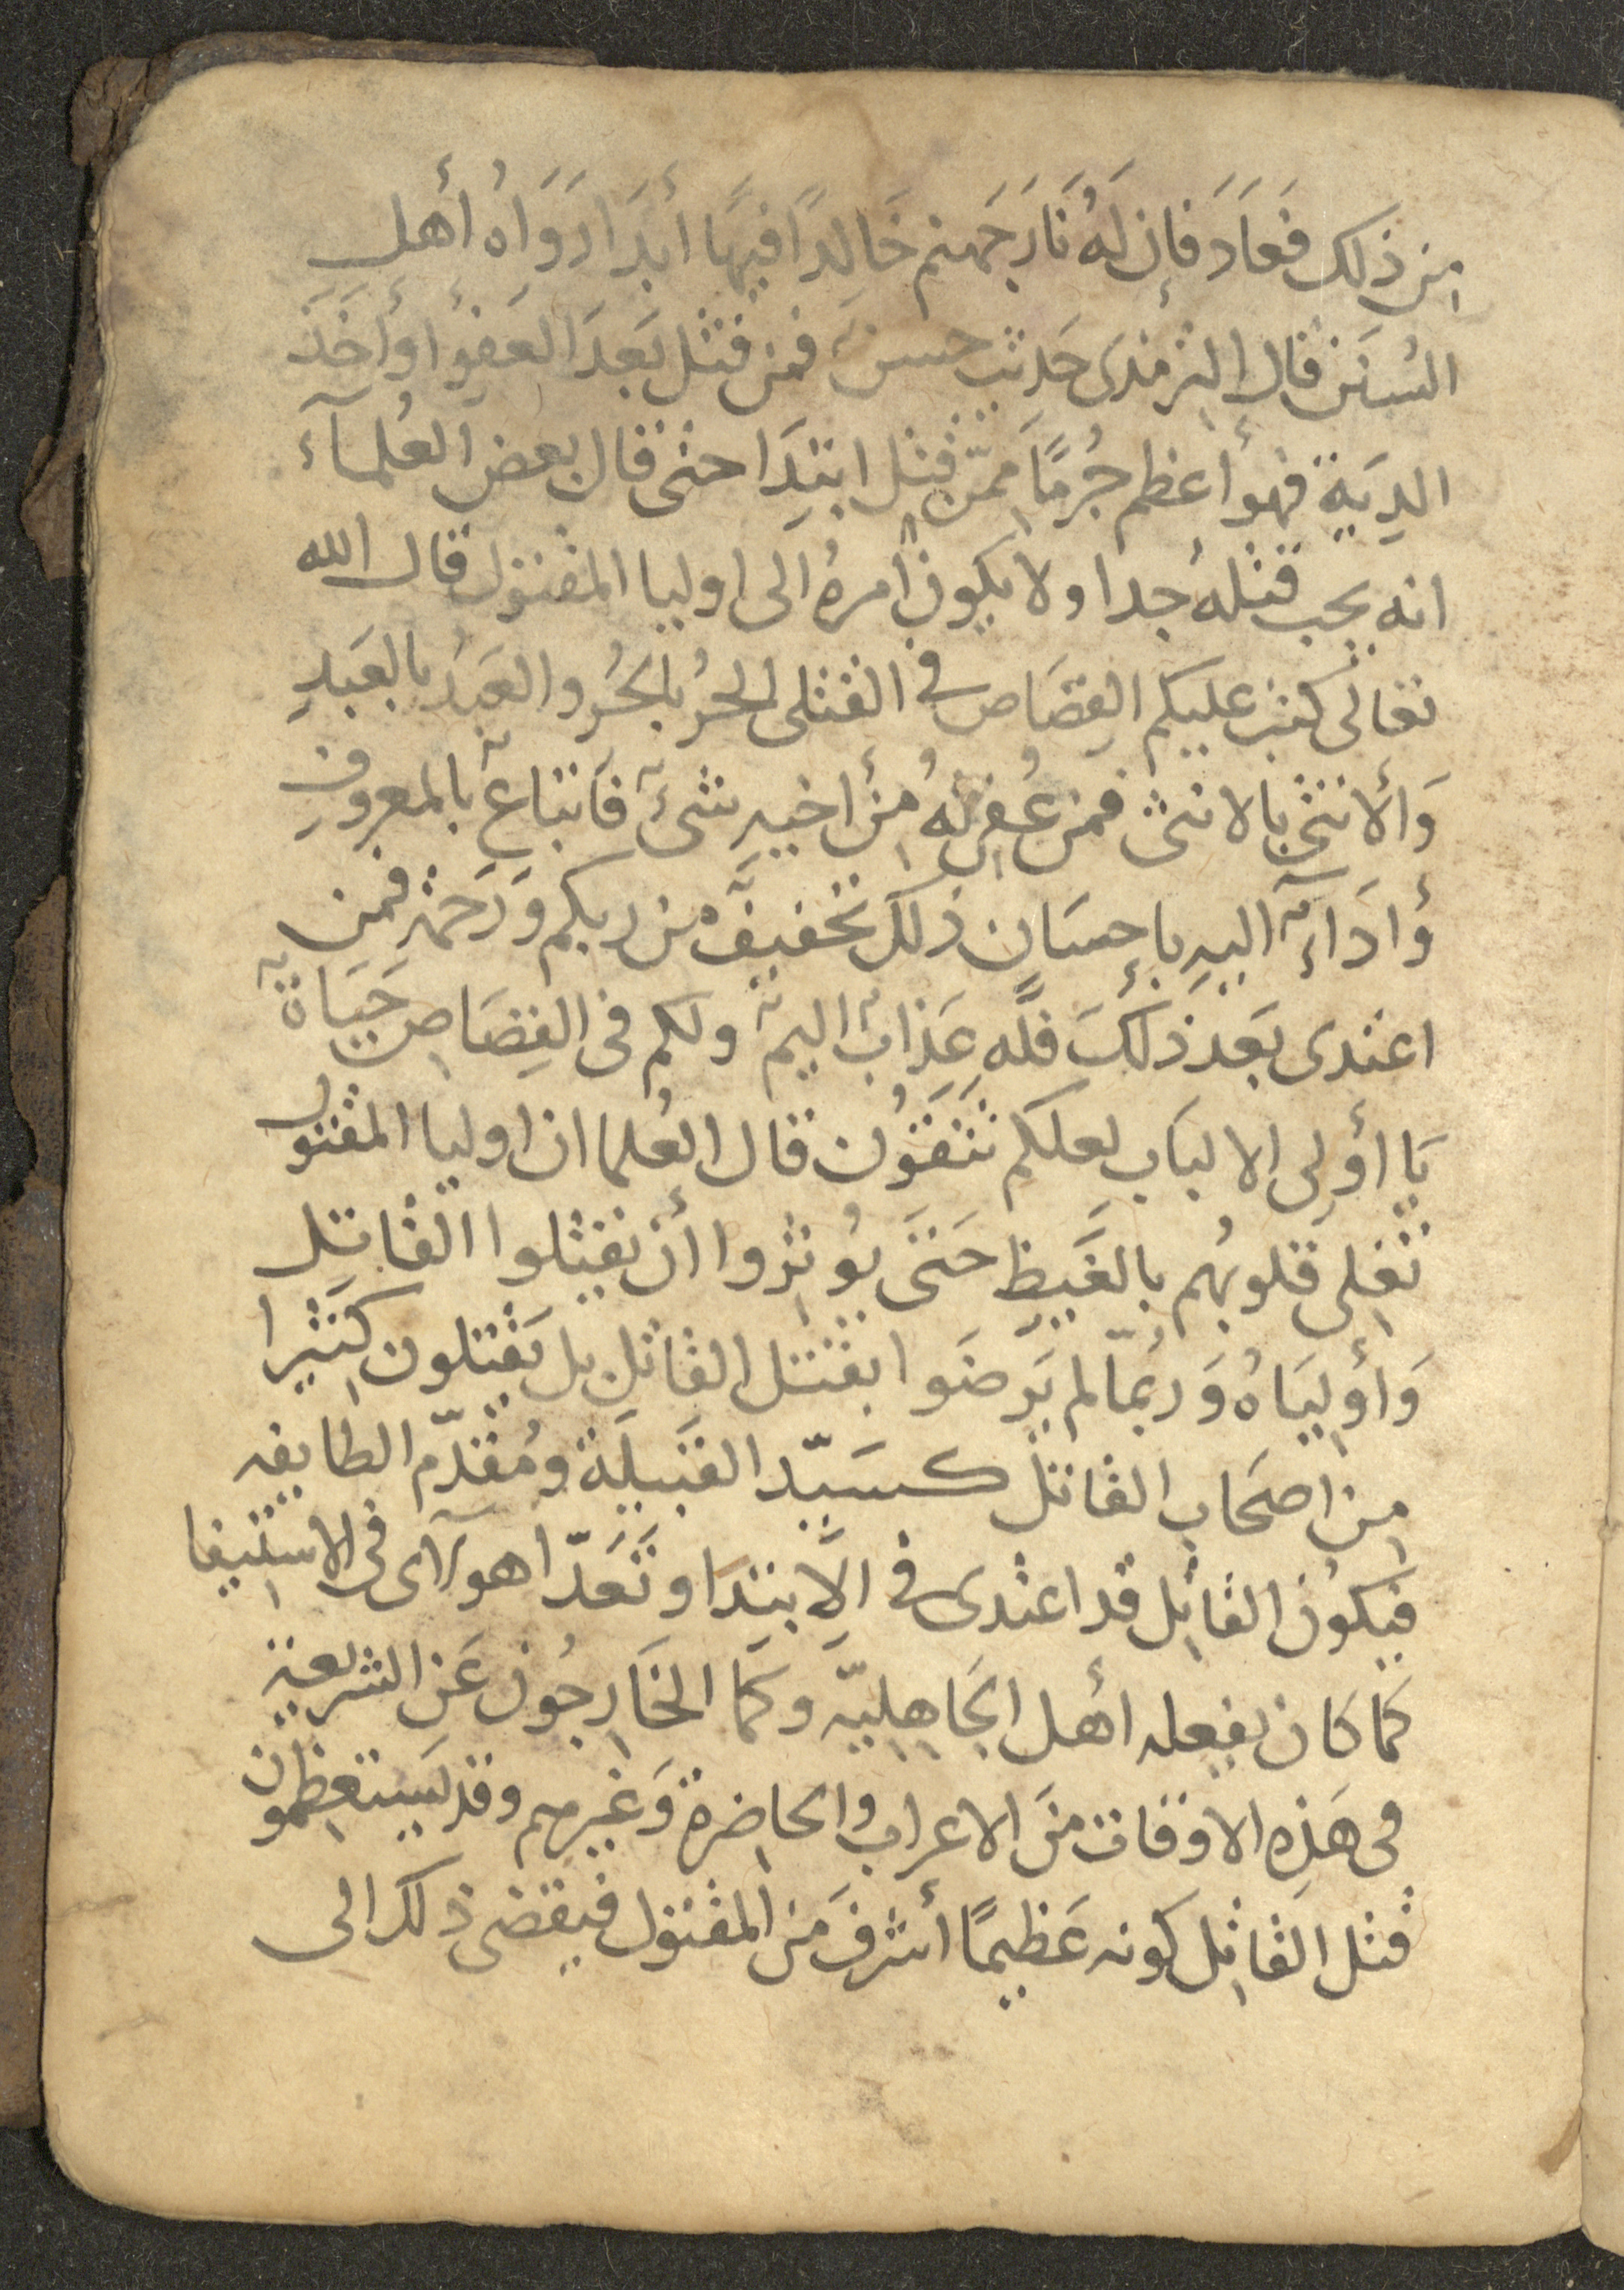 مِن ذلك فَعَادَ فَإن لَهُ نَارَ جَهنم خَالِدًا فيهَا أبَدَا رَوَاهُ أهلِ
السُنَن قال الترمذى حَديث حسنٌ فمن قتل بَعدَ العَفوِ أو أخَذَ
الدِيَةِ فهو أعظم جُرمًا مِمّن قتل ابتِدَا حتى قال بعض العُلمآء
انه يجب قتلهُ جدا ولا يكون أمرهُ الى اوليا المقتول قال الله
تعالى كتب عليكم القِصَاص في القتلى الحرُ بالحُرِ والعَبدُ بالعَبدِ
وَالأنثى بالانثى فمن عُفِى لهُ مِن أخيهِ شىءٌ فَاتباعٌ بالمعروفِ
وَأدَاءٌ اليهِ بإحسَانٍ ذلكَ تخفيفٌ من ربكم وَرَحمة فمن
اعتدى بَعد ذلكَ فلَه عَذابٌ اليمٌ ولكم فى القِصَاصِ حَيَاةٌ
يَا أوِلى الالبَاب لعلكم تَتَقوُن قال العُلما ان اوليا المقتول
تغلِى قلوبُهم بالغَيظِ حَتىَ يُوثِروا أن يقتلوا القاتل
وَأوِليَاهُ وَرُبمّا لم يَرضَوا بقتل القَاتِل بل يَقتلون كثيرا
مِن اصحَاب القاتل كسَيّد القبيلَة ومُقدّم الطايفه
فيكوُن القاتِل قد اعتدى في الاِبتدَا وتَعَدّا هولآى فى الاستيفا
كمَا كان يفعله أهل الجَاهِليّه وكمَا الخَارِجُون عَن الشريعةِ
فى هَذِه الاوقات منَ الاعراب والحاضِرة وَغيرهم وقد يَستعظِمون
قتل القاتِل كونه عَظيمًا أشرفَ مَن المقتول فيقضى ذلك الى